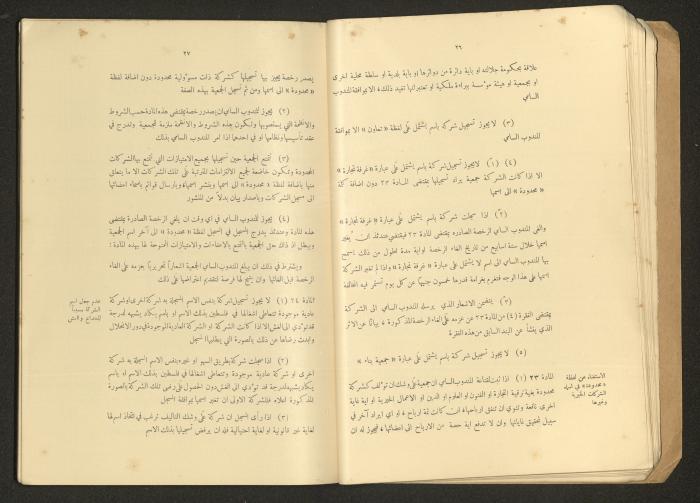 ٢٦
علاقة بحكومة جلالته او باية دائرة من دوائرها او باية بلدية او سلطة محلية اخرى
او بجمعية او هيئة مؤسسة ببراءة ملكية او تعتبر انها تفيد ذلك ، الا بموافقة المندوب
السامي
(٣) لا يجوز تسجيل شركة باسم يشتمل على لفظة « تعاون » الا بموافقة
المندوب السامي
(٤) (١) لا يجوز تسجيل شركة باسم يشتمل على عبارة « غرفة تجارة »
الا اذا كانت الشركة جمعية يراد تسجيلها بمقتضى المادة ٢٣ دون اضافة كلمة
« محدودة » الى اسمها
(٢) اذا سجلت شركة باسم يشتمل على عبارة « غرفة تجارة »
والغى المندوب السامي الرخصة الصادرة بمقتضى المادة ٢٣ فيقتضي عندئذ ان يغير
اسمها خلال ستة اسابيع من تاريخ الغاء الرخصة او اية مدة اطول من ذلك يسمح
بها المندوب السامي الى اسم لا يشتمل على عبارة « غرفة تجارة » واذا لم تغير الشركة
اسمها على هذا الوجه فتغرم بغرامة قدرها خمسون جنيهاً عن كل يوم تستمر فيه المخالفة
(٣) يتضمن الاشعار الذي يرسله المندوب السامي الى الشركة
بمقتضى الفقرة (٤) من المادة ٢٣ عن عزمه على الغاء الرخصة المذكورة ، بياناً عن الاثر
الذي ينشأ عن البند السابق من هذه الفقرة
(٥) لا يجوز تسجيل شركة باسم يشتمل على عبارة « جمعية بناء »
الاستغناء عن لفظة
« محدودة » في اسماء
الشركات الخيرية
وغيرها
المادة ٢٣ (١) اذا ثبت لقناعة المندوب السامي ان جمعية على وشك ان تؤلف كشركة
محدودة بغية ترقية التجارة او الفنون او العلوم او الدين او الاعمال الخيرية او اية غاية
اخرى نافعة وتنوي ان تنفق ارباحها ، ان كانت ثمة ارباح ، او اي ايراد آخر في
سبيل تحقيق غاياتها وان لا تدفع اية حصة من الارباح الى اعضائها ، فيجوز له ان
٢٧
يصدر رخصة يجيز بها تسجيلها كشركة ذات مسؤولية محدودة دون اضافة لفظة
« محدودة » الى اسمها ومن ثم تسجل الجمعية بهذه الصفة
(٢) يجوز للمندوب السامي ان يصدر رخصة بمقتضى هذه المادة حسب الشروط
والانظمة التي يستصوبها وتكون هذه الشروط والانظمة ملزمة للجمعية وتدرج في
عقد تأسيسها ونظامها او في احدهما اذا امر المندوب السامي بذلك
(٣) تتمتع الجمعية حين تسجيلها بجميع الامتيازات التي تتمتع بها الشركات
المحدودة وتكون خاضعة لجميع الالتزامات المترتبة على تلك الشركات الا ما يتعلق
منها باضافة لفظة « محدودة » الى اسمها وبنشر اسمها وبارسال قوائم باسماء اعضائها
الى مسجل الشركات وباصدار بيان بدلاً من المنشور
(٤) يجوز للمندوب السامي في اي وقت ان يلغي الرخصة الصادرة بمقتضى
هذه المادة وعندئذ يدرج المسجل في السجل لفظة « محدودة » الى آخر اسم الجمعية
ويبطل اذ ذاك حق الجمعية بالتمتع بالاعفاءات والامتيازات الممنوحة لها بهذه المادة :
ويشترط في ذلك ان يبلغ المندوب السامي الجمعية اشعاراً تحريرياً بعزمه على الغاء
الرخصة قبل الغائها وان يتيح لها فرصة لتقديم اعتراضها على ذلك
عدم جعل اسم
الشركة سبباً
للخداع والغش
المادة ٢٤ (١) لا يجوز تسجيل شركة بنفس الاسم المسجلة به شركة اخرى او شركة
عادية موجودة تتعاطى اشغالها في فلسطين بذلك الاسم او باسم يكاد يشبهه لدرجة
قد تؤدي الى الغش الا اذا كانت الشركة او الشركة العادية الموجودة في دور الانحلال
وابدت رضاها عن ذلك بالصورة التي يطلبها المسجل
(٢) اذا سجلت شركة بطريق السهو او خلافه بنفس الاسم المسجلة به شركة
اخرى او شركة عادية موجودة وتتعاطى اشغالها في فلسطين بذلك الاسم او باسم
يكاد يشبهه لدرجة قد تؤدي الى الغش دون الحصول على رضى تلك الشركة بالصورة
المذكورة اعلاه فللشركة الاولى ان تغير اسمها بموافقة المسجل
(٣) اذا رأى المسجل ان شركة على وشك التأليف ترغب في اتخاذ اسم لها
لغاية غير قانونية او لغاية احتيالية فله ان يرفض تسجيلها بذلك الاسم